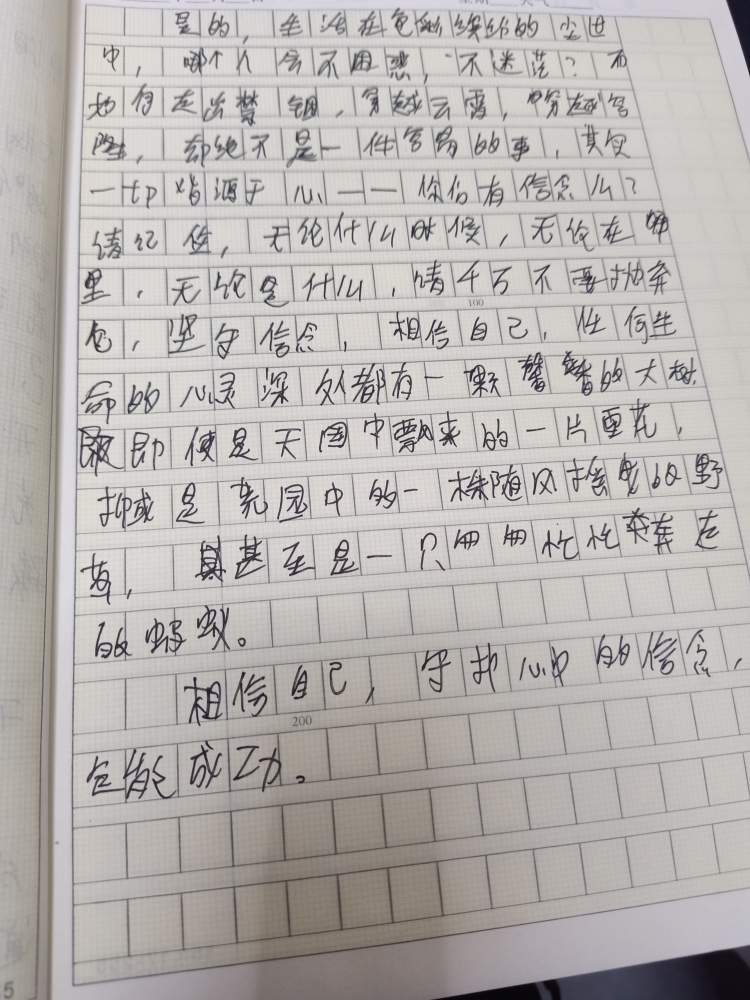 是的，生活在色彩缤纷的尘世
中，哪个人会不困惑，不迷茫？而
如何走出禁锢，穿越云雾，穿越
障，却绝不是一件容易的事，其实
一切皆源于心——你的有信念么？
请记住，无论什么时候，无论在哪
里，无论是什么，请千万不要抛弃
它，坚守信念，相信自己，任何生
命的心灵深处都有一颗馨香的大树，
即使是天国中飘来的一片雪花，
抑或是荒园中的一株随风摇曳的野
草，甚至是一只匆匆忙忙奔走
的蚂蚁。
相信自己，守护心中的信念，
它能成功。
100
200